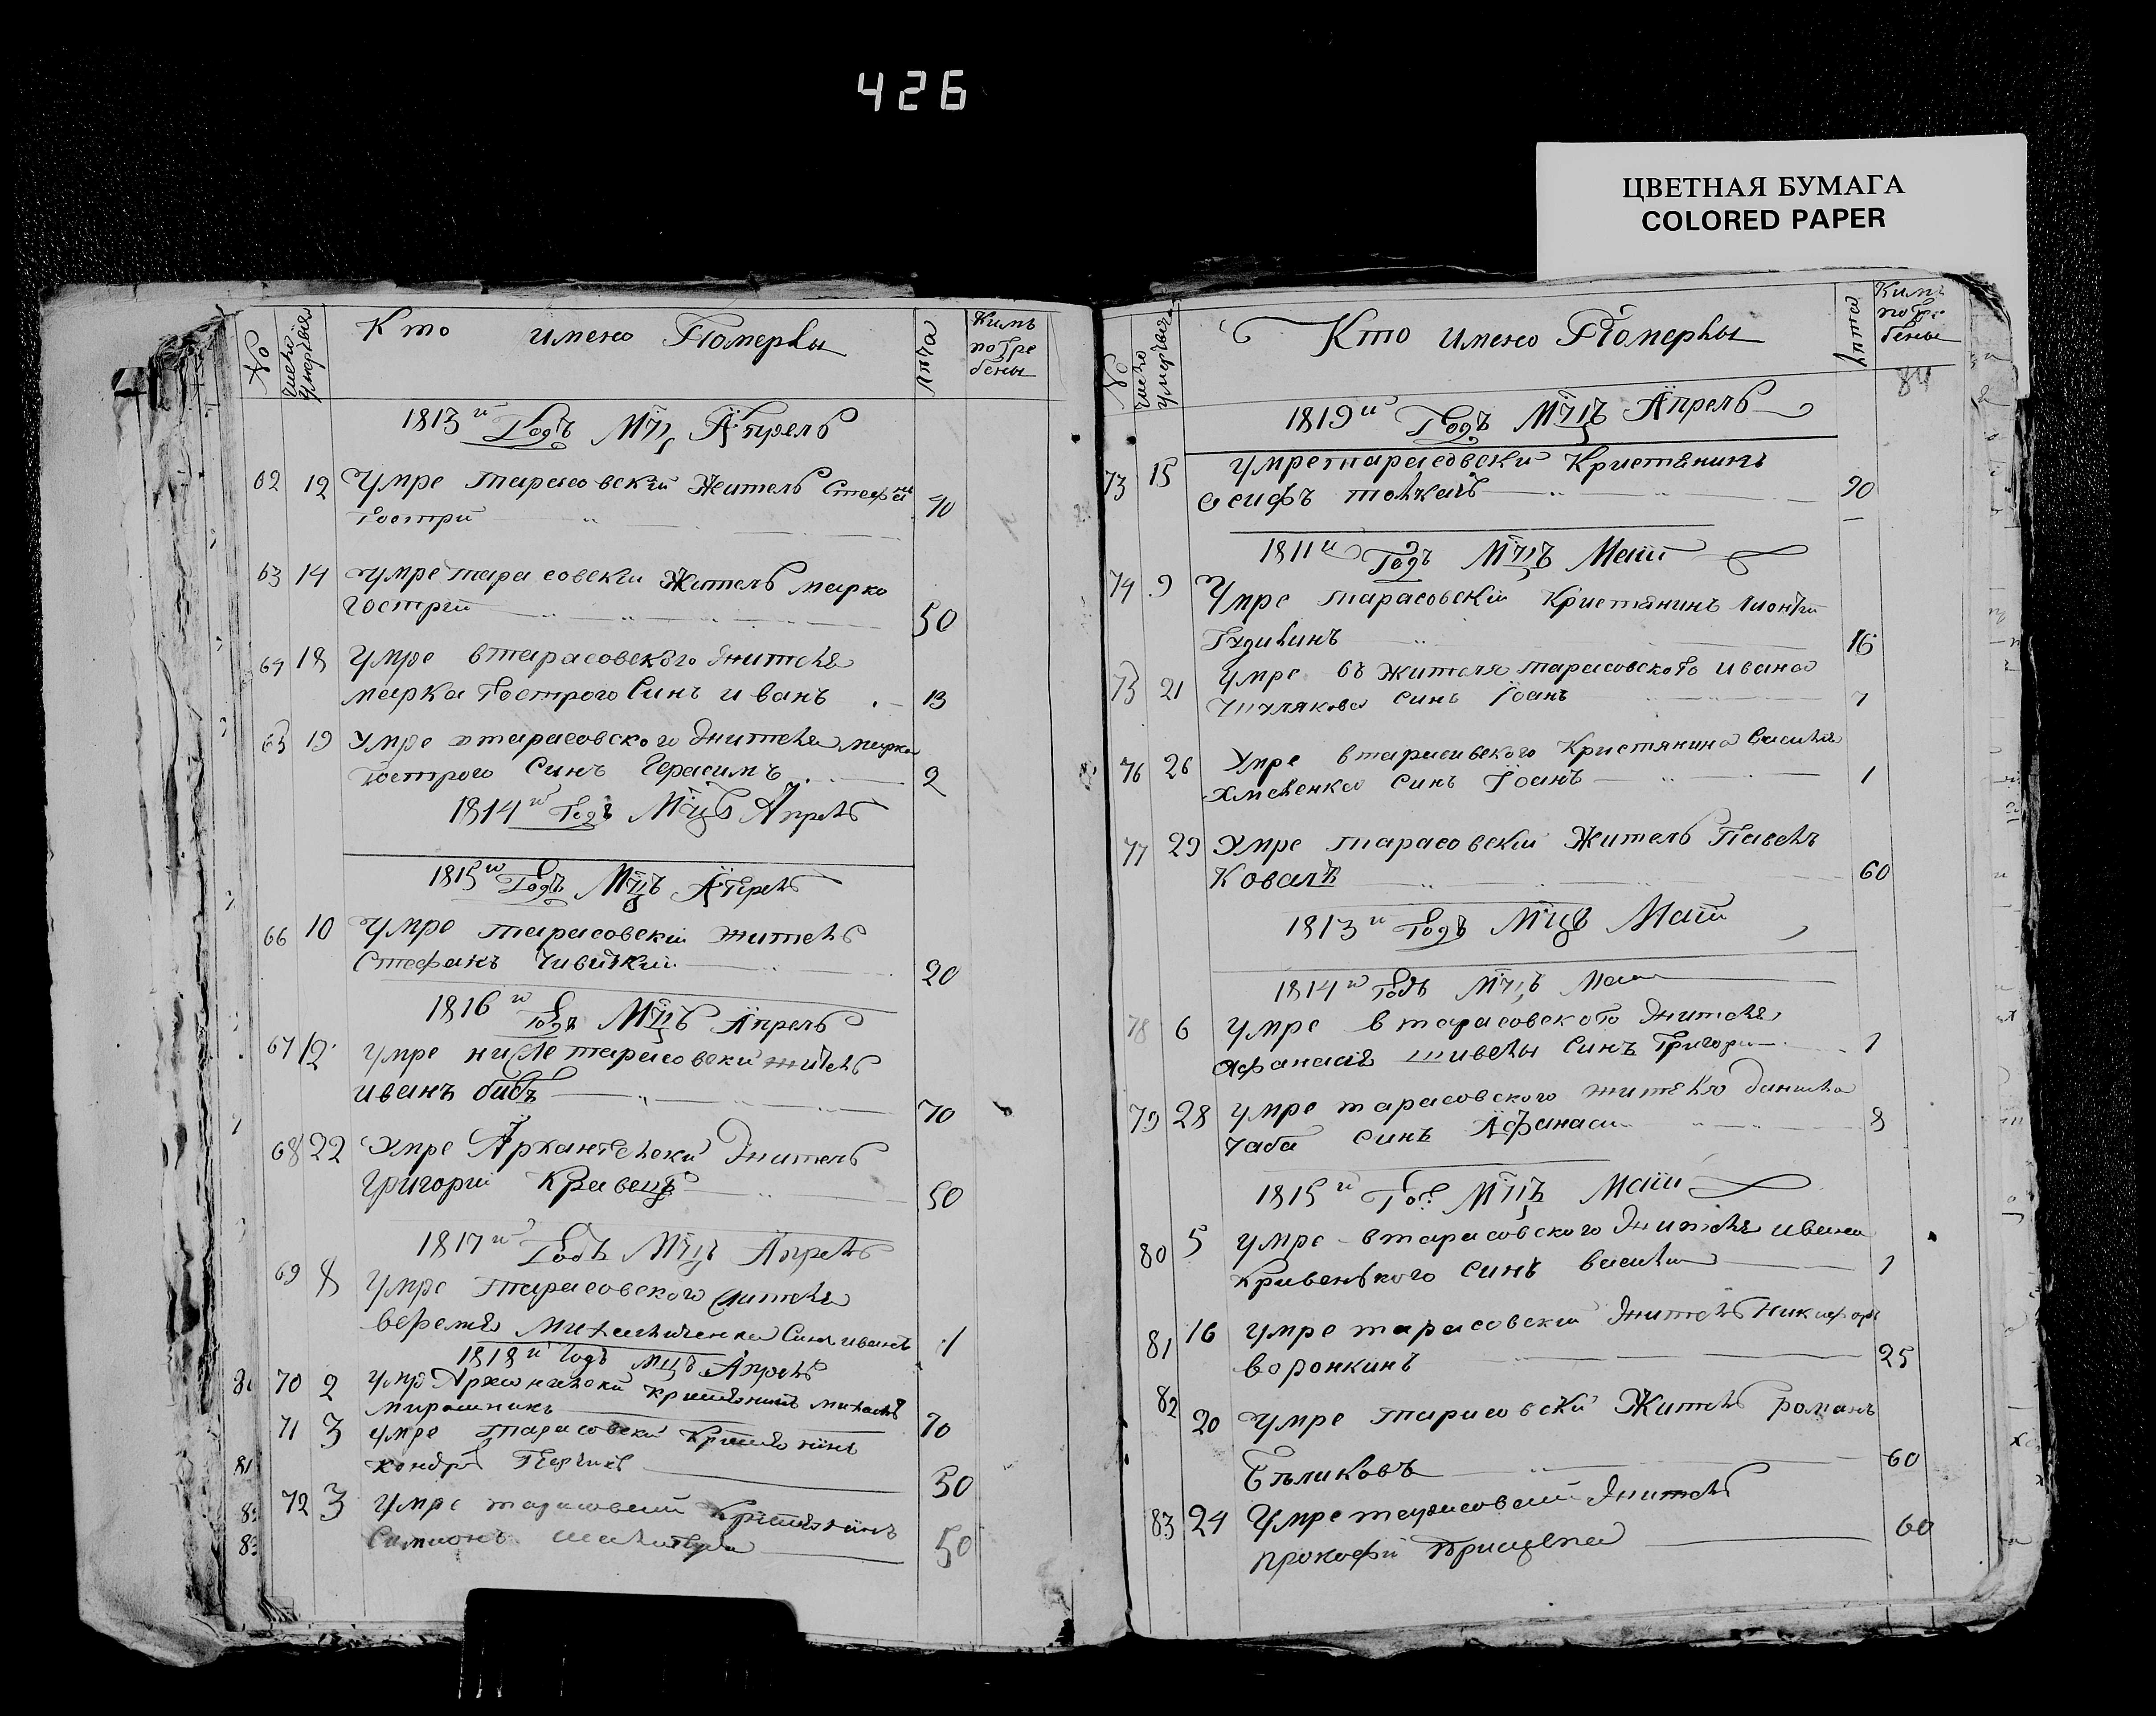 426
ЦВЕТНАЯ БУМАГА
COLORED PAPER
№
число умертвія
Кто имено Померлы
лѣта
Кимъ
погре
бены
1813й Годъ Мцъ Апрель
62 12 Умре тарасовскій Житель Стефан
Гострій 40
63 14 Умре тарасовскій Житель марко
Гострій 50
64 18 Умре втарасовского жителя
марка Гострого Синъ иванъ 13
65 19 Умре втарасовского жителя марка
Гострого Синъ Герасимъ 2
1814й Годъ Мцъ Апрель
1815й Годъ Мцъ Апрель
66 10 Умре тарасовскій житель
Стефанъ 20
1816й Годъ Мцъ Апрель
67 12 Умре тарасовски житель
иванъ бибъ 70
68 22 Умре Архангельски житель
Григорій Кравецъ 50
1817й Годъ Мцъ Апрель
69 8 Умре тарасовского жителя
Синъ иванъ 1
1818й Годъ Мцъ Апрель
80 70 2 умре Архангельски кристянинъ михаилъ
мирошникъ 70
71 3 умре тарасовски Кристянинъ
81 Кондра 50
72 3 умре тарасовски Кристянинъ
Симионъ 50
№
число умертвія
Кто имено Померлы
лѣта
Кимъ
погре
бены
84
1819й Годъ Мцъ Апрель
73 15 умре тарасовски Кристянинъ
осифъ толкачъ 20
1811й Годъ Мцъ Маій
74 9 Умре тарасовскій Кристянинъ
Гудилинъ 16
75 21 умре въ жителя тарасовского ивана
Чихлякова синъ Іоанъ 7
76 26 Умре втарасивского Кристянина василя
Хмеленка синъ Іоанъ 1
77 29 Умре тарасовскій Житель Павелъ
Коваль 60
1813й Годъ Мцъ Маій
1814й Годъ Мцъ Маій
78 6 умре втарасовского жителя
афанасія шивелы синъ Григори 1
79 28 умре тарасовского жителя данила
чаба синъ Афанаси 8
1815й Год Мцъ Маій
80 5 умре втарасовского жителя ивана
Кривенького синъ васили 1
81 16 умре тарасовскій житель Никифоръ
воронкинъ 25
82 20 умре тарасовски Житель романъ
Бѣликовъ 60
83 24 Умре тарасовски житель
прокофи прищепа 60